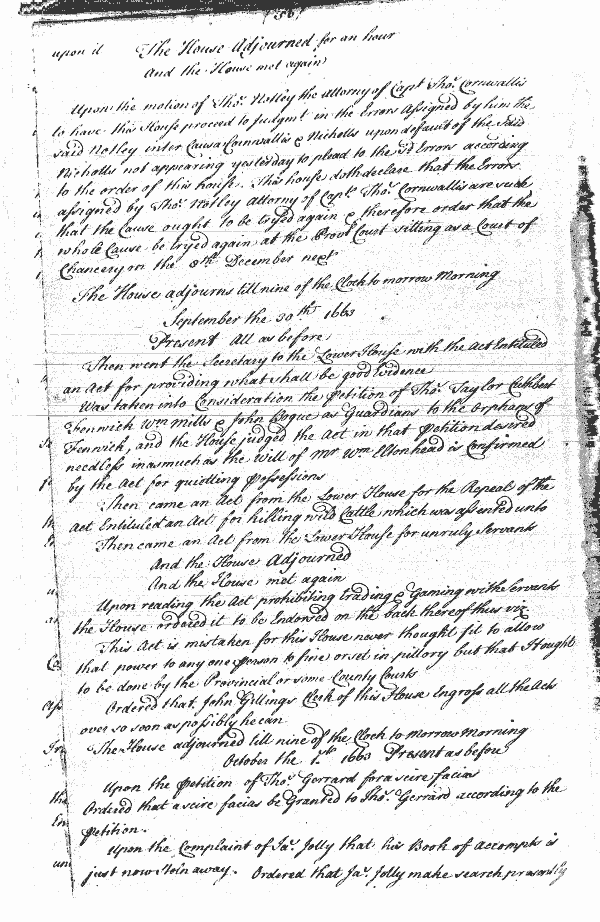 (36)
upon it The House Adjourned for an hour
And the House met again
Upon the motion of Tho: Notley the Attorny of Capt Tho: Cornwallis
to have this House proceed to Judgmt in the Errors Assigned by him the
said Notley inter Causa Cornwallis & Nicholls upon default of the Said
Nicholls not appearing yesterday to plead to the sd Errors according
to the order of this house. This house doth declare that the Errors
assigned by Tho: Notley Attorny of Capt Tho: Cornwallis are such
that the Cause ought to be tryed again & therefore order that the
whole Cause be tryed again at the Provll Court sitting as a Court of
Chancery on the 8th December next
The House adjourns till nine of the Clock to morrow Morning
September the 30th 1663
Present All as before
Then went the Secretary to the Lower House with the Act Entituled
an Act for providing what shall be good Evidence
Was taken into Consideration the Petition of Tho: Taylor Cuthbert
Fenwick Wm Mills & John Bogue as Guardians to the Orphans of
Fenwick, and the House judged the Act in that petition desired
needless in as much as the Will of Mr Wm Elonhead is Confirmed
by the Act for quietling possessions
Then came an Act from the Lower House for the Repeal of the
Act Entituled an Act for killing wild Cattle which was assented unto
Then came an Act from the Lower House for unruly Servants
And the House Adjourned
And the House met again
Upon reading the Act prohibiting trading & Gaming with Servants
the House ordered it to be Endorsed on the back thereof thus viz
This Act is mistaken for this House never thought fit to allow
that power to any one person to fine or set in pillory but that it ought
to be done by the Provincial or some County Courts
Ordered that John Gittings Clerk of this House Ingross all the Acts
over so soon as possibly he can
The House adjourned till nine of the Clock to morrow Morning
October the 1st 1663 Present as before
Upon the petition of Tho: Gerrard for a scire facias
Ordered that a scire facias be Granted to Tho: Gerrard according to the
petition.
Upon the Complaint of Ja: Jolly that his Book of Accompts is
just now stoln away. Ordered that Ja: Jolly make search presently